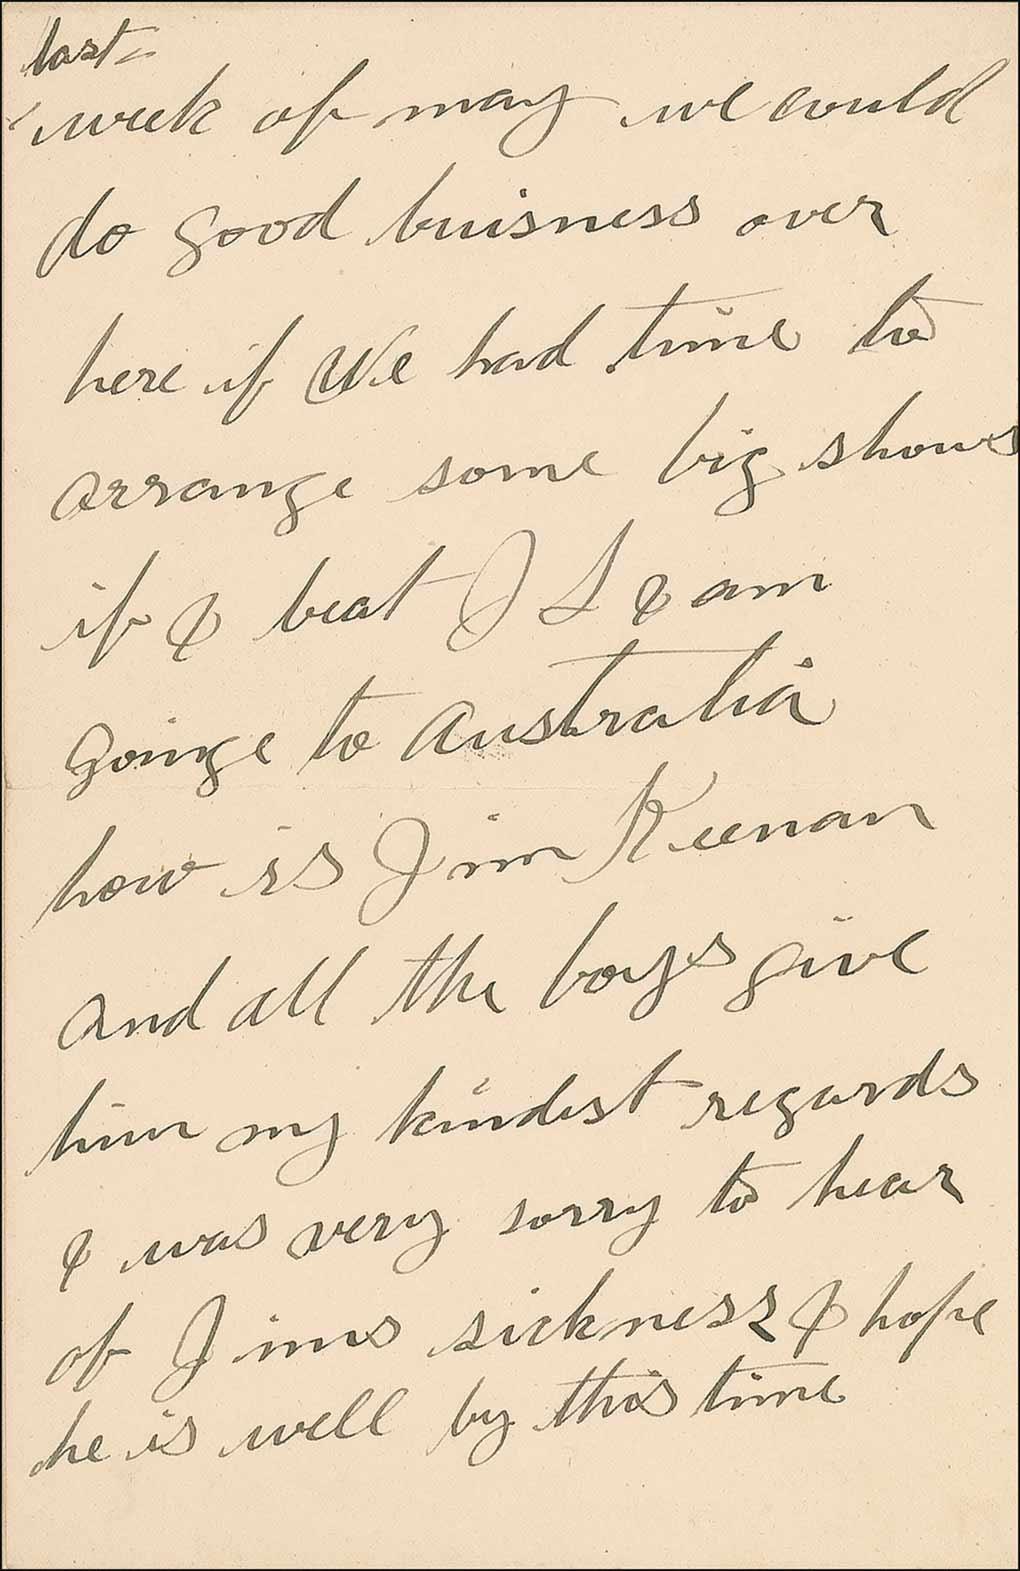 last
week of may we could
do good buisness over
here if We had time to
arrange some big shows
if I beat J L I am
goinge to Australia
how is Jim Keenan
and all the boys give
him my kindest regards
I was very sorry to hear
of Jims sickness I hope
he is well by this time